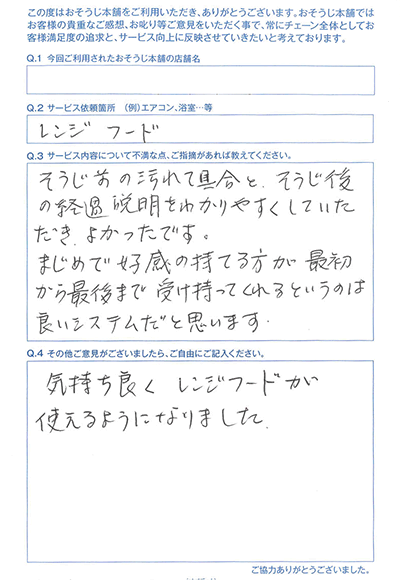 この度はおそうじ本舗をご利用いただき、ありがとうございます。おそうじ本舗では
お客様の貴重なご感想、お叱り等ご意見をいただく事で、常にチェーン全体としてお
客様満足度の追求と、サービス向上に反映させていきたいと考えております。
Q.1 今回ご利用されたおそうじ本舗の店舗名
Q.2 サービス依頼箇所 （例）エアコン、浴室…等
レンジ フード
Q.3 サービス内容について不満な点、ご指摘があれば教えてください。
そうじ前の汚れて具合と、そうじ後
の経過説明をわかりやすくしていた
だき、よかったです。
まじめで好感の持てる方が最初
から最後まで受け持ってくれるというのは
良いシステムだと思います.
Q.4 その他ご意見がございましたら、ご自由にご記入ください。
気持ち良く レンジフードが
使えるようになりました.
ご協力ありがとうございました。